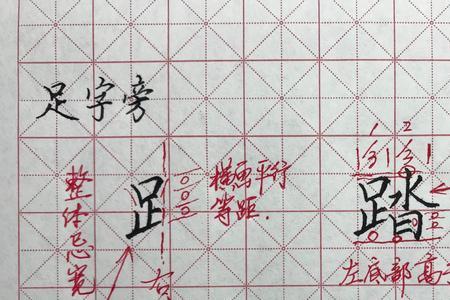 足字旁
整体忌宽
⻊
横画平行
等距.
右
1 2
踏
左底部高